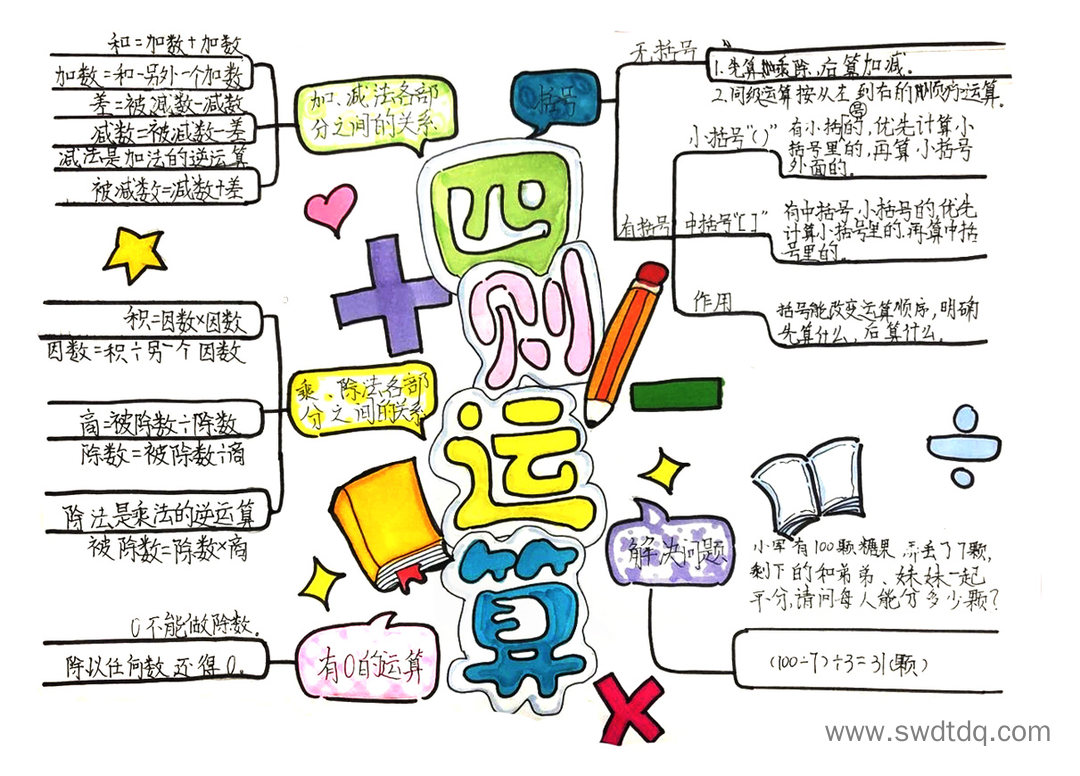 四则运算
加、减法各部
分之间的关系
和=加数+加数
加数=和-另外一个加数
差=被减数-减数
减数=被减数-差
减法是加法的逆运算
被减数=减数+差
乘、除法各部
分之间的关系
积=因数×因数
因数=积÷另一个因数
商=被除数÷除数
除数=被除数÷商
除法是乘法的逆运算
被除数=除数×商
有0的运算
0不能做除数。
除以任何数还得0。
括号
无括号
1.先算乘除,后算加减。
2.同级运算按从左到右的顺序运算。
有括号
小括号"()"
有小括号的,优先计算小
括号里的,再算小括号
外面的。
中括号"[]"
有中括号,小括号的,优先
计算小括号里的,再算中括
号里的。
作用
括号能改变运算顺序,明确
先算什么,后算什么。
解决问题
小军有100颗糖果 弄丢了7颗,
剩下的和弟弟、妹妹一起
平分,请问每人能分多少颗?
(100-7)÷3=31(颗)
www.swdtdq.com